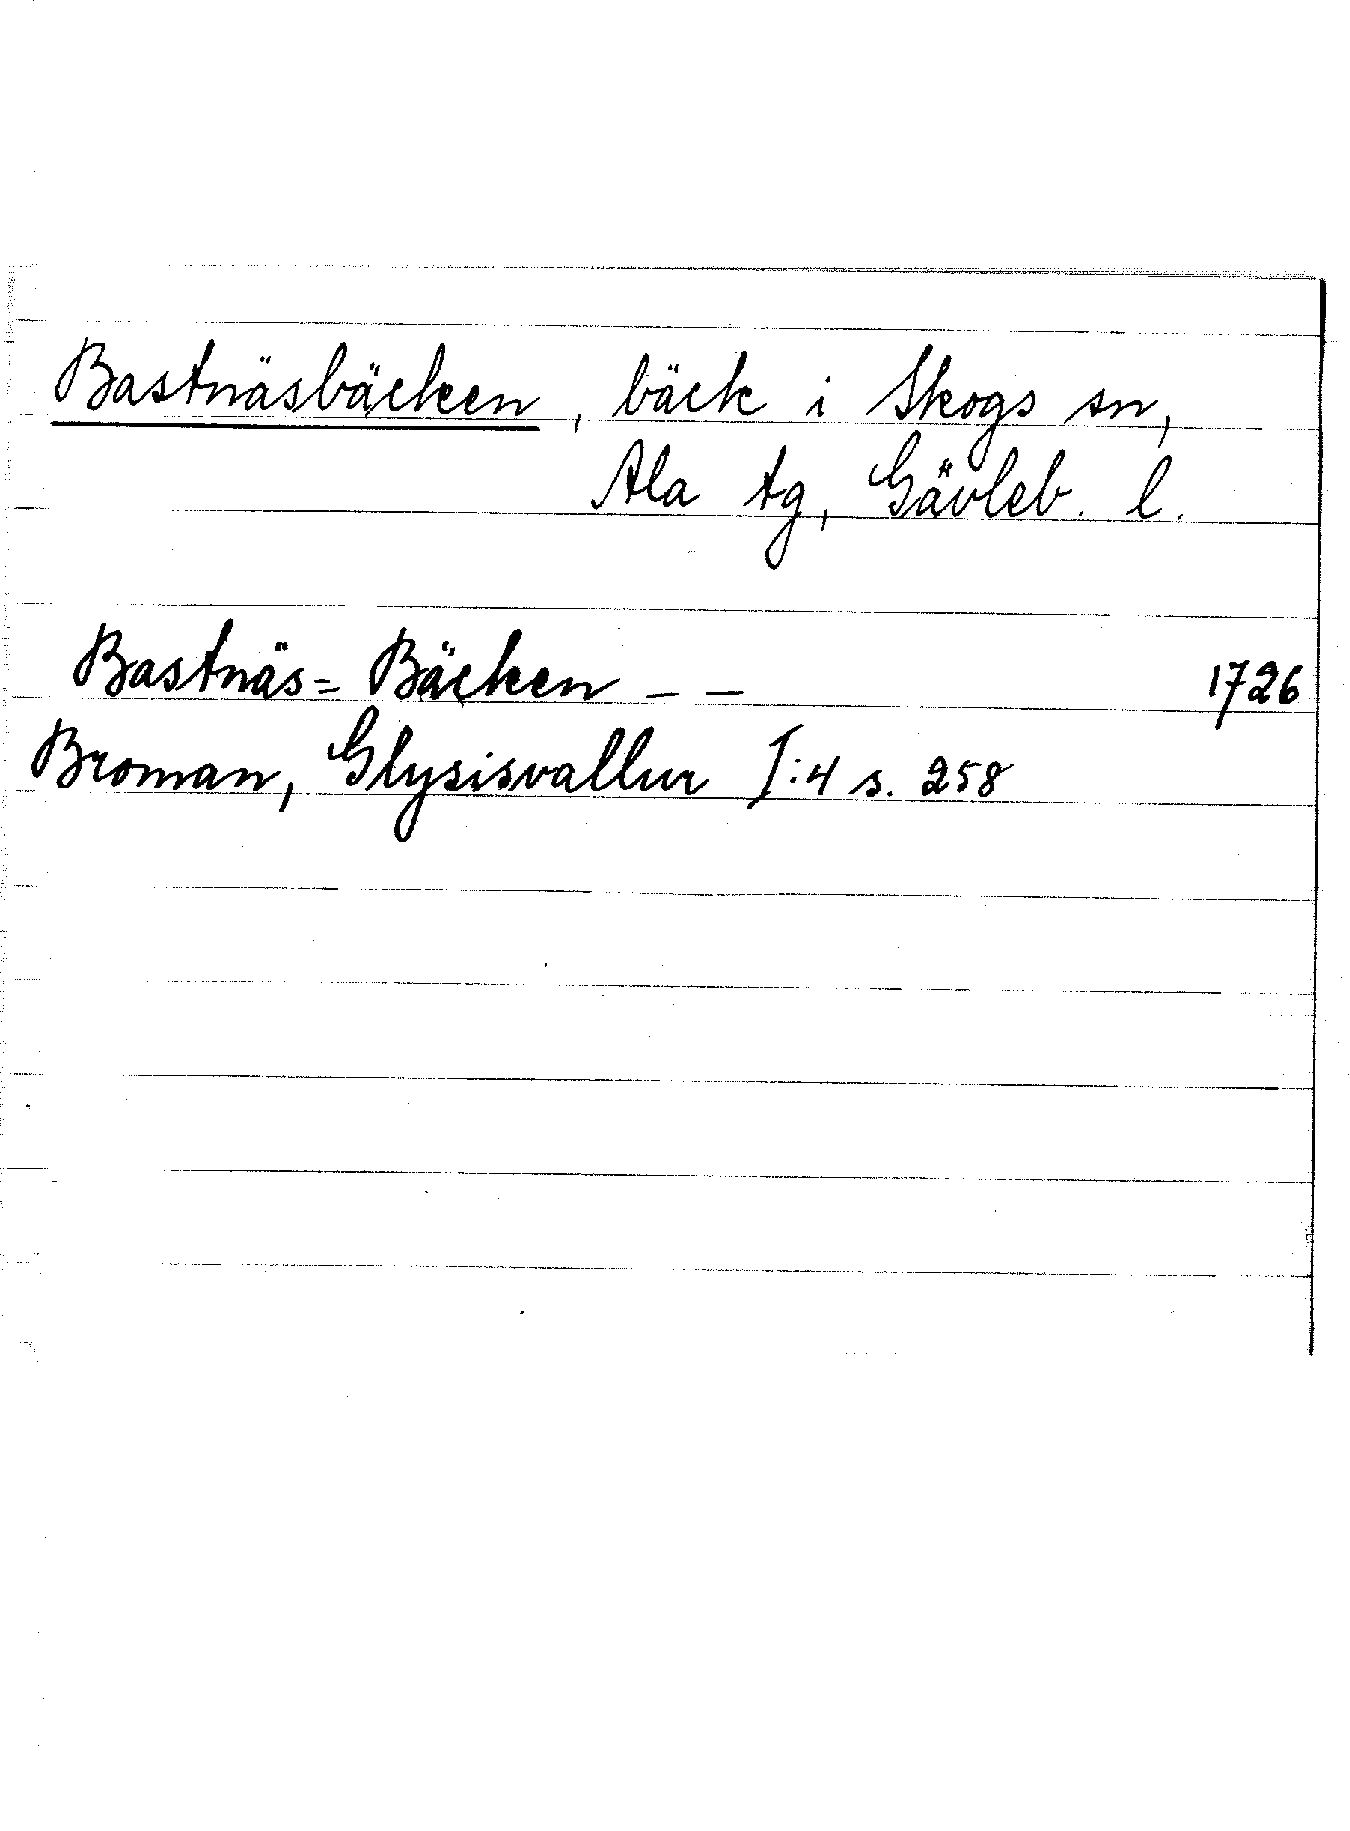 Bastnäsbäcken, bäck i Skogs sn,
Ala tg, Gävleb. l.
Bastnäs= Bäcken – – 1726
Broman, Glysisvallur I:4 s. 258